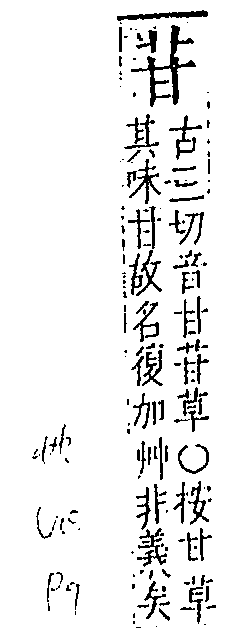 苷
古三切音甘苷草○按甘草
其味甘故名復加艸非義矣